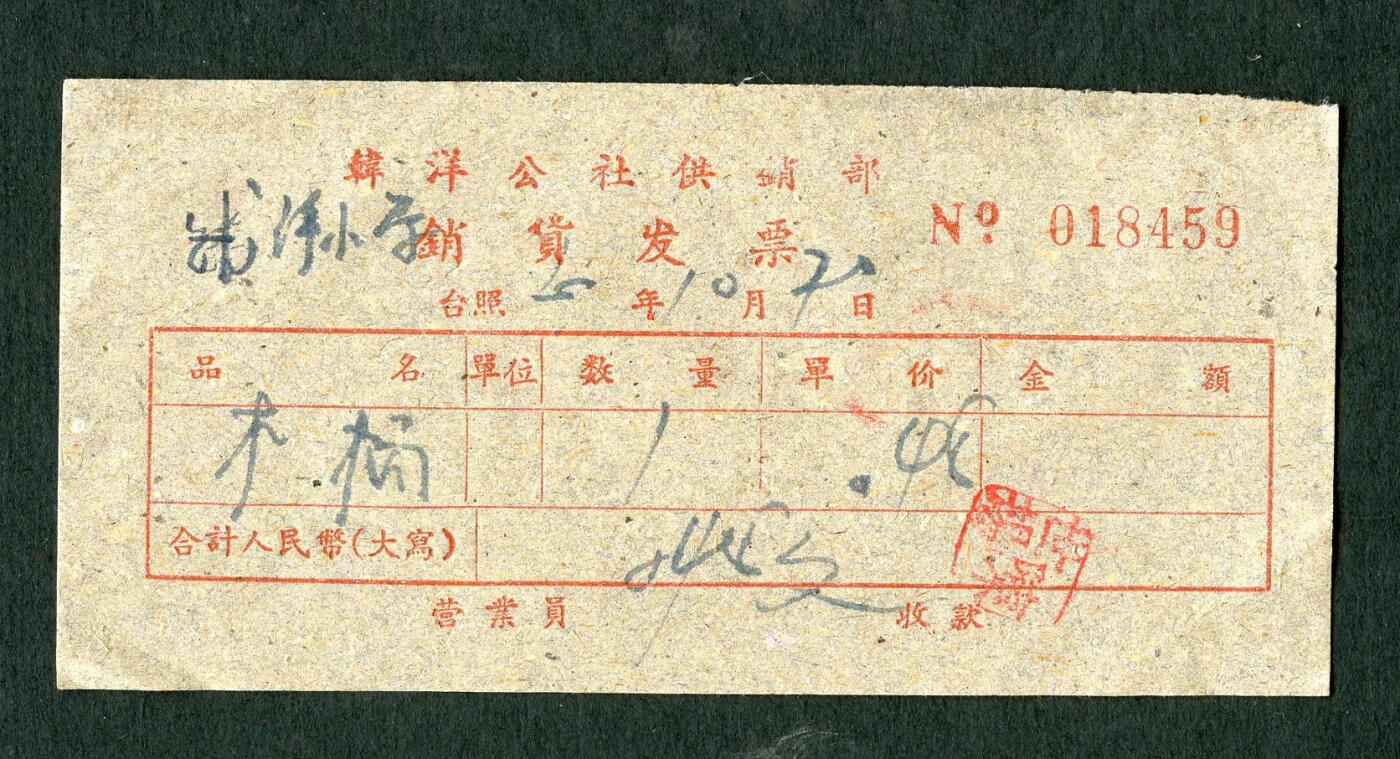 韓洋公社供銷部
小学
銷貨发票
Nº 018459
台照 年 10 月 21 日
品名 單位 数量 單价 金額
木桶 1 .46
合計人民幣(大寫)
营業員 收款